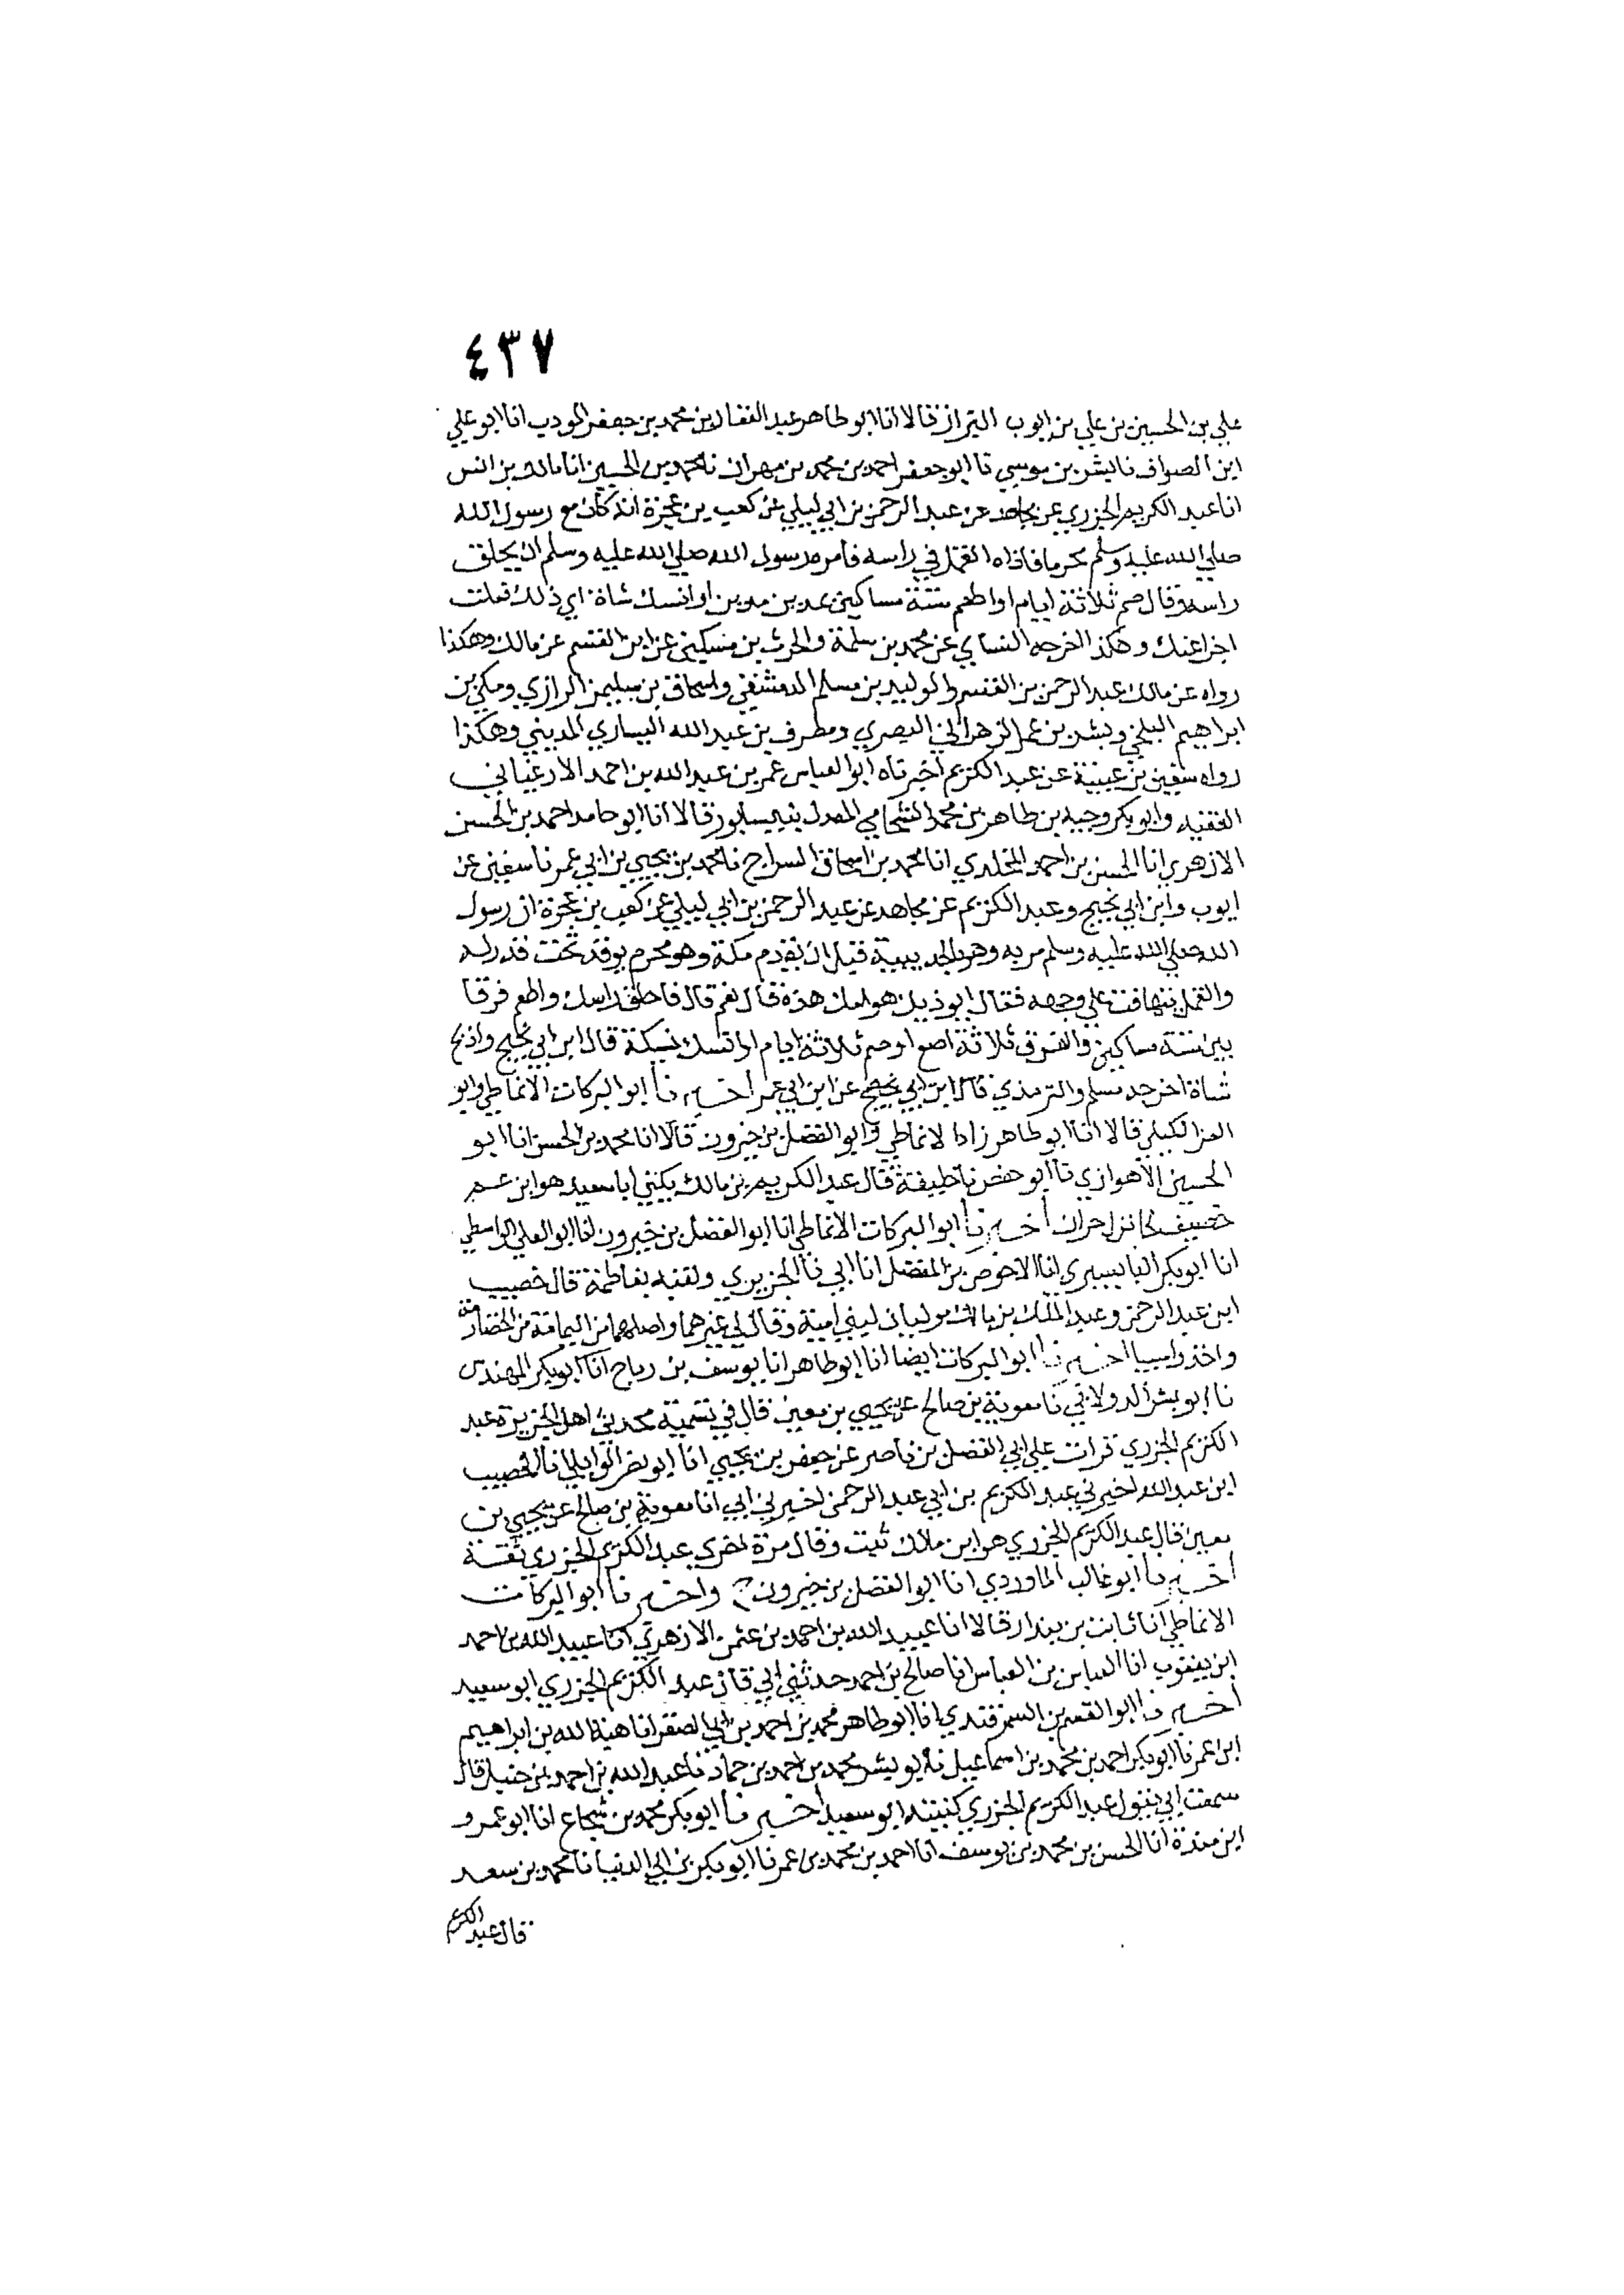 ٤٣٧
علي بن الحسين بن علي بن ايوب البزاز قالا انا ابو طاهر عبد الغفار بن محمد بن جعفر المودب انا ابو علي
ابن الصواف نا بشر بن موسي نا ابو جعفر احمد بن محمد بن مهران نا محمد بن الحسين انا مالك بن انس
انا عبد الكريم الجزري عن مجاهد عن عبد الرحمن بن ابي ليلي عن كعب بن عجزة انه كان مع رسول الله
صلي الله عليه وسلم محرما فاذاه القمل في راسه فامره رسول الله صلي الله عليه وسلم ان يحلق
راسه وقال صم ثلاثة ايام او اطعم ستة مساكين مدين مدين او انسك شاة اي ذلك فعلت
اجزا عنك وهكذا اخرجه النساي عن محمد بن سلمة والحرث بن مسكين عن ابن القسم عن مالك وهكذا
رواه عن مالك عبد الرحمن بن القسم والوليد بن مسلم الدمشقي واسحاق بن سليمن الرازي ومكي بن
ابراهيم البلخي وبشر بن عمر الزهراني البصري ومطرف بن عبد الله اليساري المديني وهكذا
رواه سفين بن عيينة عن عبد الكريم اخبرناه ابو العباس عمر بن عبد الله بن احمد الارغياني
الفقيه وابو بكر وجيه بن طاهر بن محمد الشحامي المعدل بنيسابور قالا انا ابو حامد احمد بن الحسن
الازهري انا الحسن بن احمد المخلدي انا محمد بن اسحاق السراج نا محمد بن يحيي بن ابي عمر نا سفين عن
ايوب وابن ابي نجيح وعبد الكريم عن مجاهد عن عبد الرحمن بن ابي ليلي عن كعب بن عجزة ان رسول
الله صلي الله عليه وسلم مر به وهو بالحديبية قبل ان يقدم مكة وهو محرم يوقد تحت قدر له
والقمل يتهافت علي وجهه فقال ايوذيك هوامك هذه قال نعم قال فاحلق راسك واطعم فرقا
بين ستة مساكين والفرق ثلاثة اصع او صم ثلاثة ايام او انسك نسيكة قال ابن ابي نجيح واذبح
شاة اخرجه مسلم والترمذي قال ابن ابي نجيح عن ابن ابي عمر اخبرنا ابو البركات الانماطي وابو
العز الكيلي قالا انا ابو طاهر زاد الانماطي وابو الفضل بن خيرون قالا انا محمد بن الحسن انا ابو
الحسين الاهوازي نا ابو حفص نا خليفة قال عبد الكريم بن مالك يكني ابا سعيد هو ابن عم
خصيف كا نزل حران اخبرنا ابو البركات الانماطي انا ابو الفضل بن خيرون انا ابو العلي الواسطي
انا ابو بكر البابسيري انا الاحوص بن المفضل انا ابي نا الجزيري ولقنه بفاطمة قال خصيب
ابن عبد الرحمن وعبد الملك بن مالك موليان لبني امية وقال لي غيرهما واصلهما من اليمامة من الخضارمة
واخذ راسيا اخبرنا ابو البركات ايضا انا ابو طاهر انا يوسف بن رباح انا ابو بكر المهندس
نا ابو بشر الدولابي نا معوية بن صالح عن يحيي بن معين قال في تسمية محدثي اهل الجزيرة عبد
الكريم الجزري قرات علي ابي الفضل بن ناصر عن جعفر بن يحيي انا ابو نصر الوايلي انا الخصيب
ابن عبد الله اخبرني عبد الكريم بن ابي عبد الرحمن اخبرني ابي انا معوية بن صالح عن يحيي بن
معين قال عبد الكريم الجزري هو ابن مالك ثبت وقال مرة اخري عبد الكريم الجزري ثقة
اخبرنا ابو غالب الماوردي انا ابو الفضل بن خيرون ح واخبرنا ابو البركات
الانماطي انا ثابت بن بندار قالا انا عبيد الله بن احمد بن عثمن الازهري انا عبيد الله بن احمد
ابن يعقوب انا العباس بن العباس انا صالح بن احمد حدثني ابي قال عبد الكريم الجزري ابو سعيد
اخبرنا ابو القسم بن السمرقندي انا ابو طاهر محمد بن احمد بن ابي الصقر انا هبة الله بن ابراهيم
ابن عمر نا ابو بكر احمد بن محمد بن اسماعيل نا ابو بشر محمد بن احمد بن حماد نا عبد الله بن احمد بن حنبل قال
سمعت ابي يقول عبد الكريم الجزري كنيته ابو سعيد اخبرنا ابو بكر محمد بن شجاع انا ابو عمرو
ابن مندة انا الحسن بن محمد بن يوسف انا احمد بن محمد بن عمر نا ابو بكر بن ابي الدنيا نا محمد بن سعد
قال عبد الكريم